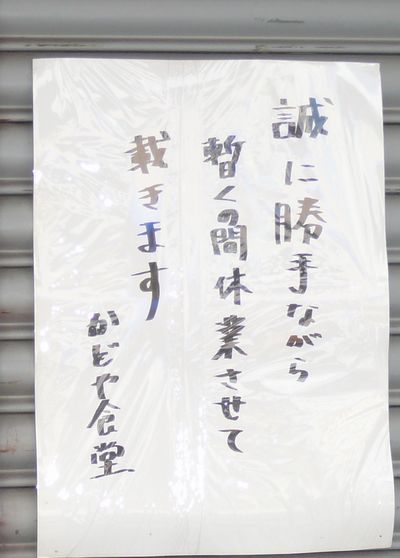 誠に勝手ながら
暫くの間休業させて
戴きます
かどや食堂